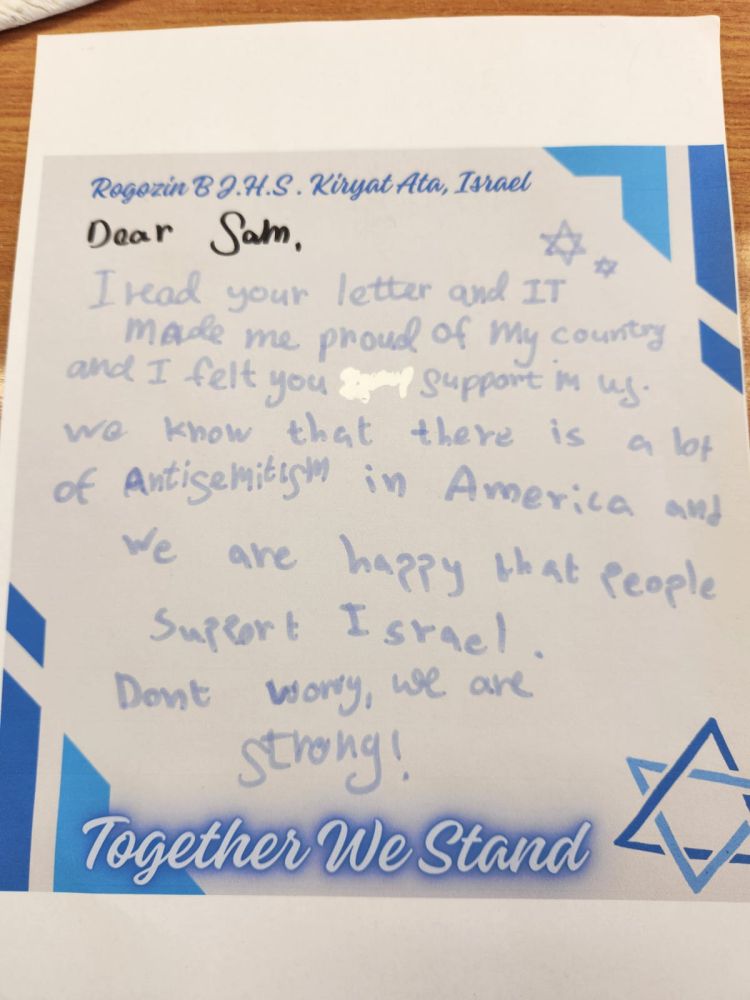 Rogozin B J.H.S. Kiryat Ata, Israel
Dear Sam,
I read your letter and IT
made me proud of my country
and I felt you support in us.
we know that there is a lot
of Antisemitism in America and
we are happy that people
support Israel.
Dont worry, we are
strong!
Together We Stand